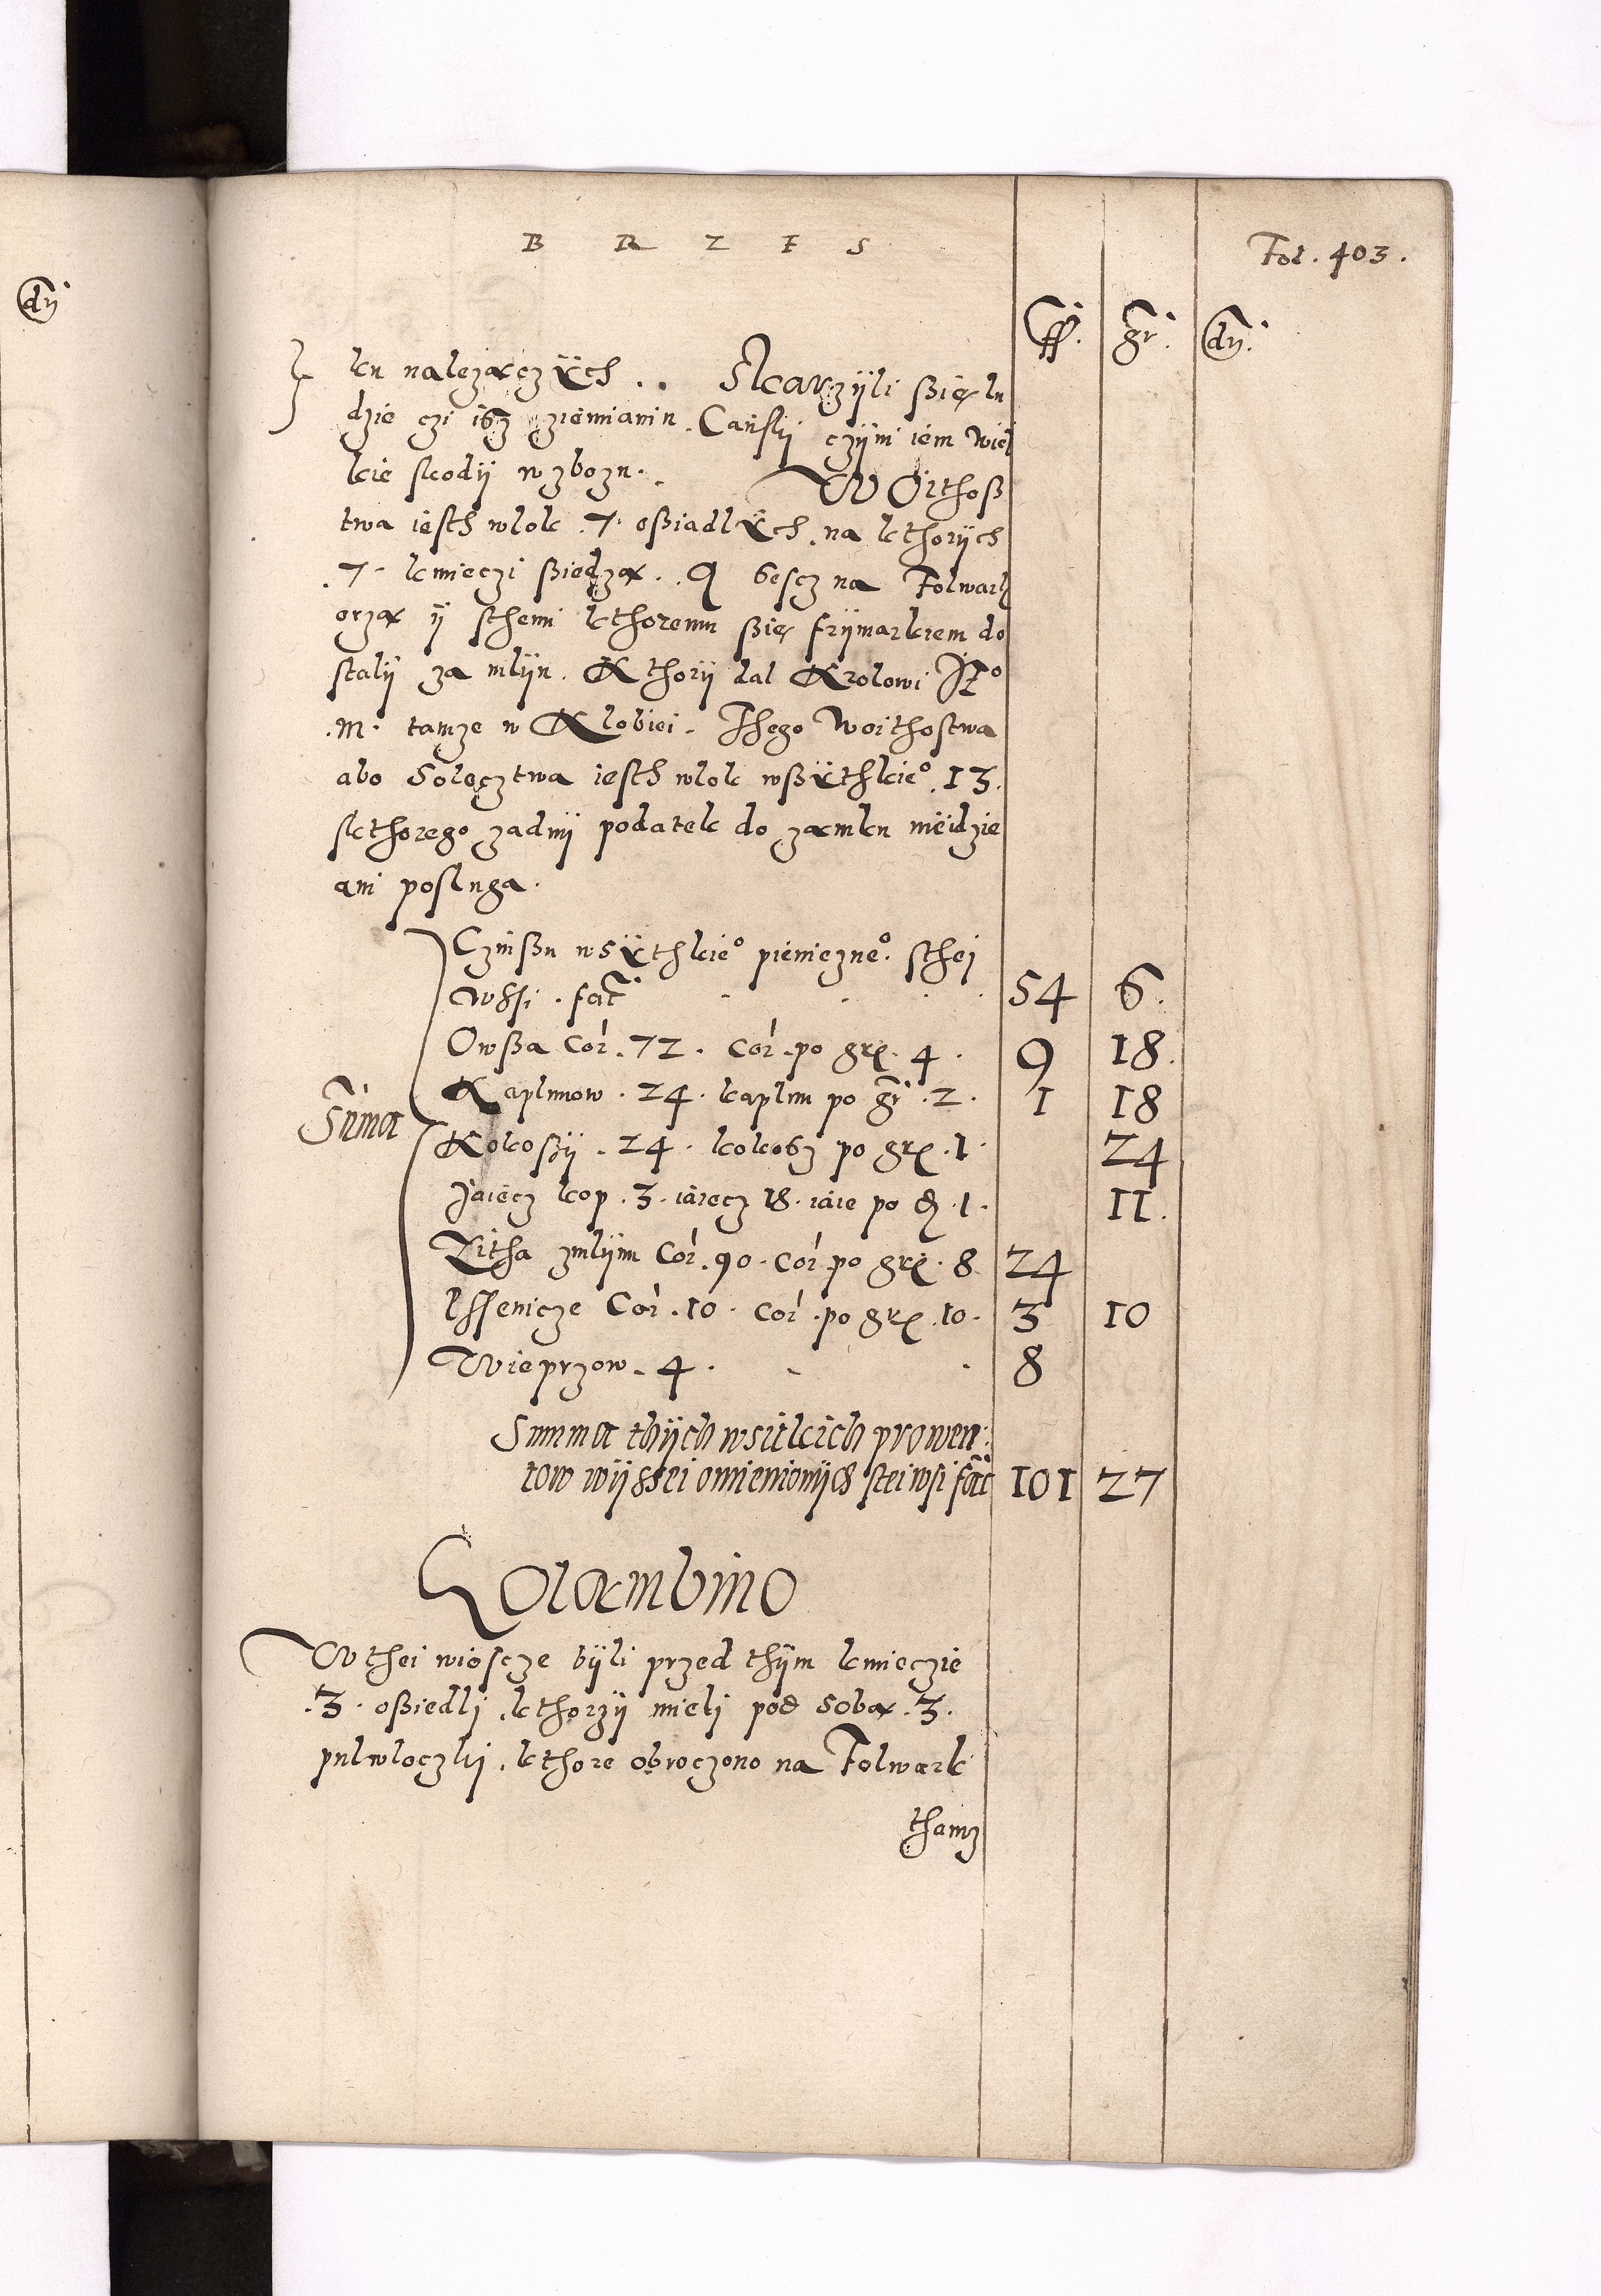 dn̄
B R Z E S
Fol. 403.
ff. gr. dn̄.
ku należączÿch .. Skarzÿli ßię lu
dzie czi isz ziemianin Cańskj czÿni iem wiel
kie skodÿ w zbozu.. WOithoß
twa iesth wlok .7. oßiadlÿch na kthorÿch
.7. kmieczi ßiedzą. 9 besz na Folwark
orzą ÿ themi kthoremu ßię frÿmarkiem do
stalÿ za mlÿn. Kthorÿ dal Krolowi J̄º
.M. tamże w Klobiei. Thego Woithostwa
abo Soleczt wa iesth wlok wßÿthkieº .13.
skthorego zadnÿ podatek do zamku nieidzie
ani posluga.
Czinßu wsÿthkieº pienieznº. sthej
wssi . faĉ . . . . 54 6.
Owßa Cor .72. Cor .po gr. 4. 9 18.
Kaplunow .24. kaplun po gr .2. 1 18
Sūma
Kokoßÿ .24. kokosz po gr .1. 24
Jaiecz kop .3. iaiecz 18. iaie po d .1. 11.
Zitha zmlÿna Cor .90. Cor po gr. 8 24
Pssenicze Cor .10. Cor .po gr .10. 3 10
Wieprzow .4. . . 8
Summa thÿch wsitkich prowen:
tow wÿssei omienionÿch stei wsi faĉ 101 27
Golambino
W thei wioscze bÿli przed thÿm kmieczie
.3. oßiedlj .kthorzÿ mielj pod sobą .3.
pulwloczkj .kthore obroczono na Folwark
thamz